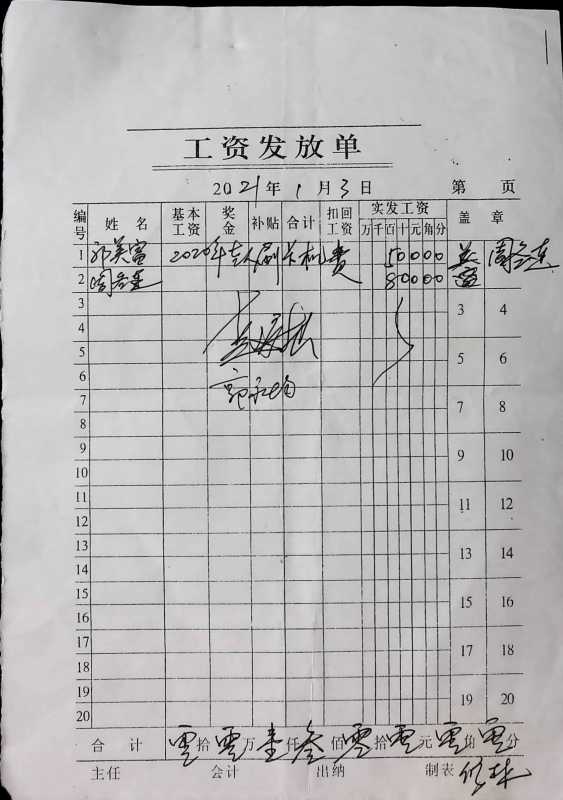 工资发放单
2021年 1月 3日 第 页
编号 姓名 基本工资 奖金 补贴 合计 扣回工资 实发工资 万千百十元角分 盖章
1 邓美富 2020年老人刷卡机费 50000
2 80000
3 3 4
4
5 5 6
6
7 7 8
8
9 9 10
10
11 11 12
12
13 13 14
14
15 15 16
16
17 17 18
18
19 19 20
20
合计 零拾零万壹仟叁佰零拾零元零角零分
主任 会计 出纳 制表